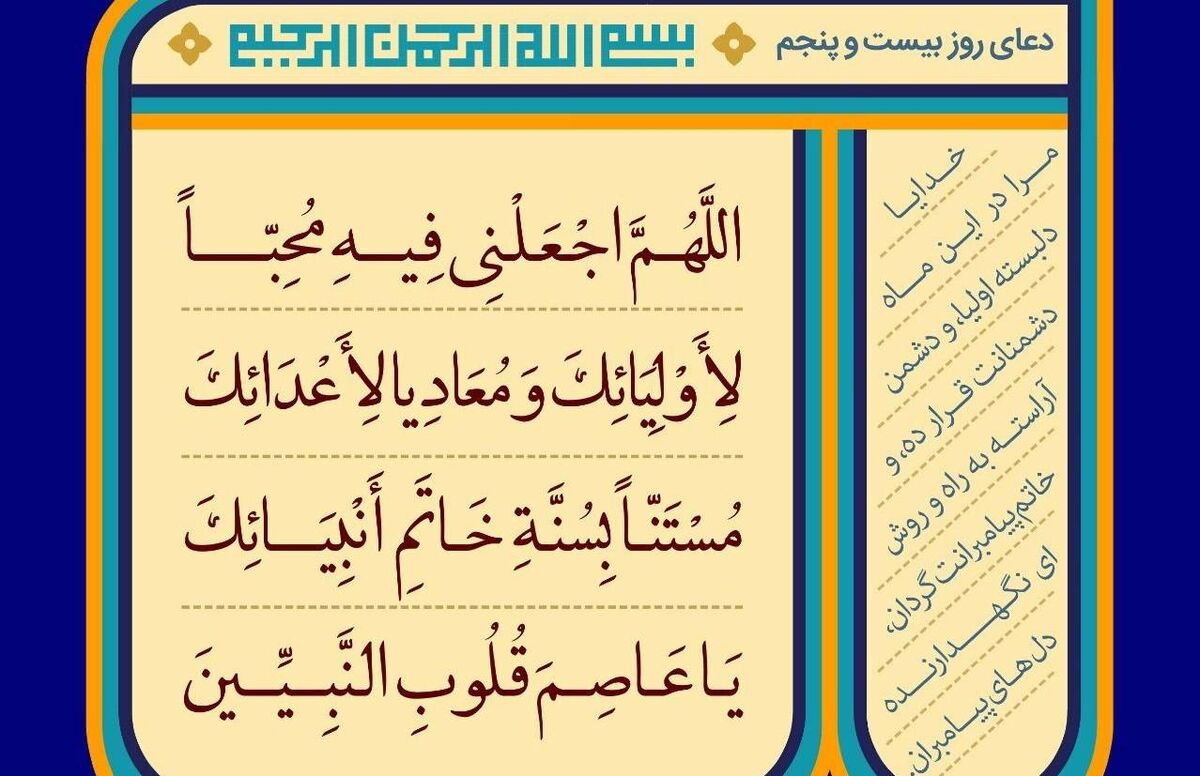 دعای روز بیست و پنجم
بسم الله الرحمن الرحیم
اللَّهُمَّ اجْعَلْنِي فِيهِ مُحِبّاً
لِأَوْلِيَائِكَ وَ مُعَادِيا لِأَعْدَائِكَ
مُسْتَنّاً بِسُنَّةِ خَاتَمِ أَنْبِيَائِكَ
يَا عَاصِمَ قُلُوبِ النَّبِيِّينَ
خدایا
مرا در این ماه
دلبسته اولیا، و دشمن
دشمنانت قرار ده، و
آراسته به راه و روش
خاتم پیامبرانت گردان،
ای نگهدارنده
دل‌های پیامبران.